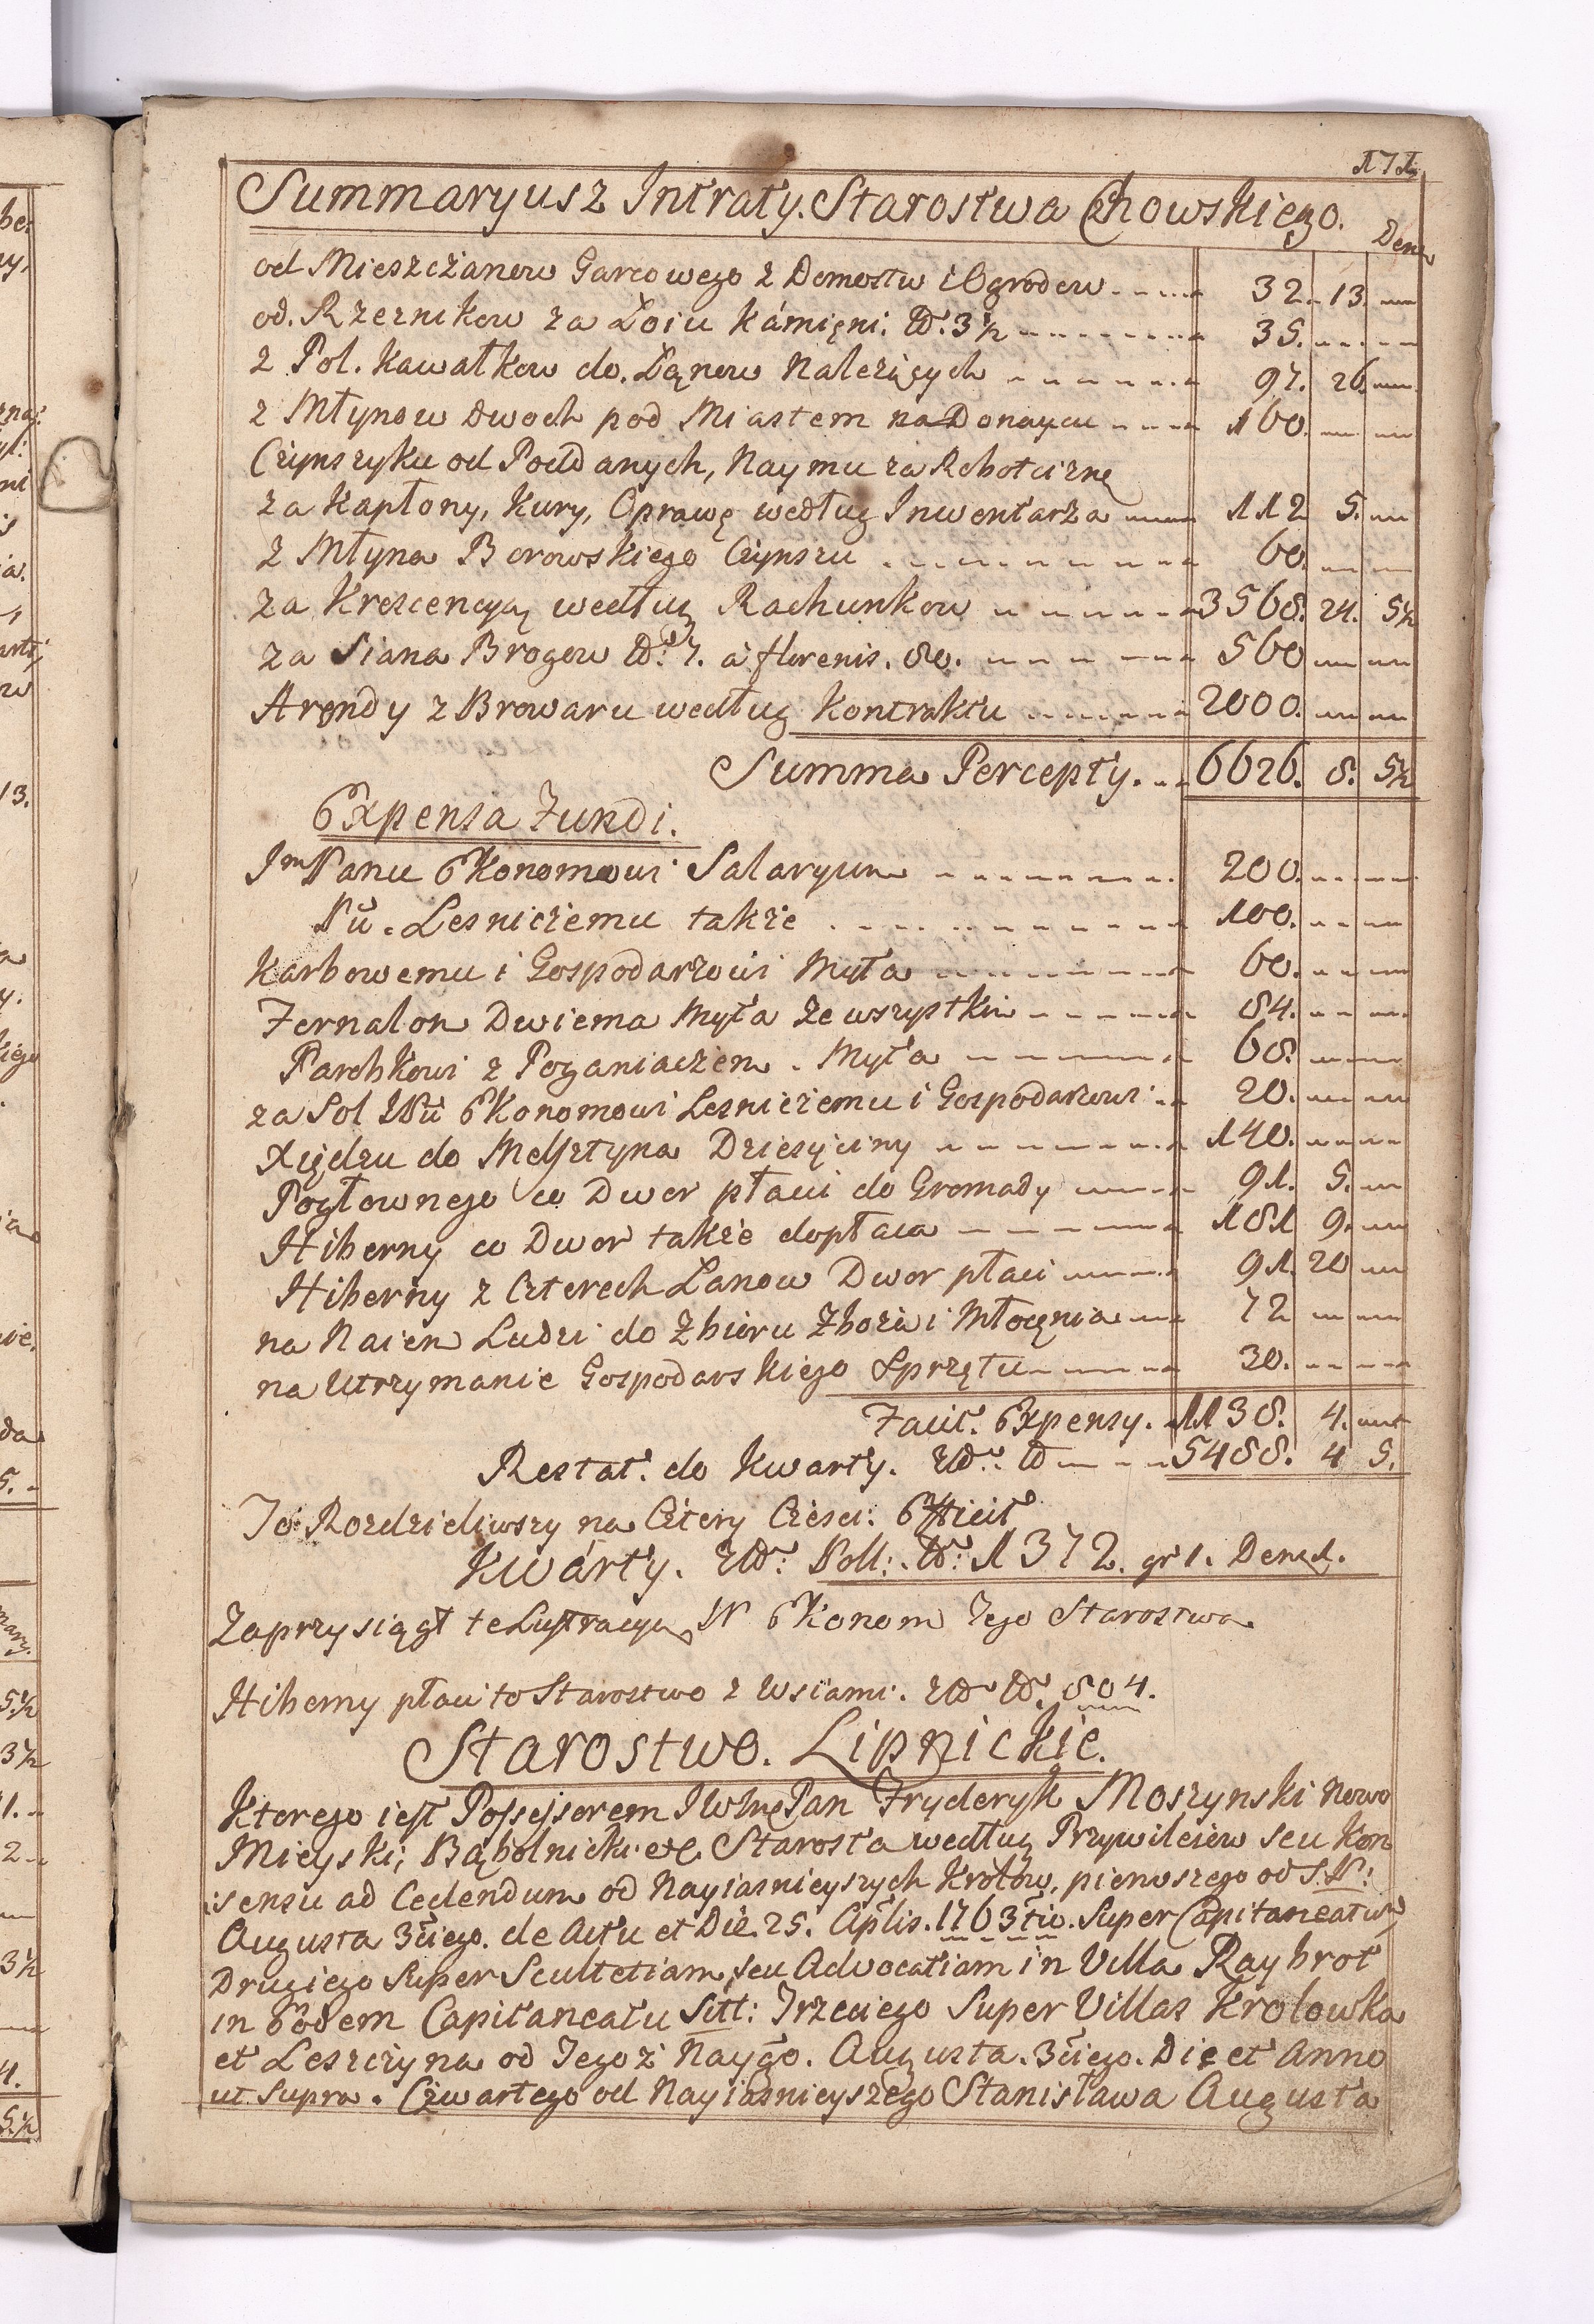 171
Summaryusz Intraty. Starostwa Czchowskiego.
Den
od Mieszczanow Garcowego z Domostw i Ogrodow 32. 13.
od. Rzeznikow za Łoiu Kámięni. No. 3 1/2 35.
z Pol. Kawałkow do. Łąnow Należących 97. 26
z Młynow Dwoch pod Miastem na Donaycu 160
Czynszyku od Poddanych, Naymu za Robotciznę
za Kapłony, Kury, Oprawę według Inwentarza 112 5.
z Młyna Borowskiego Czynszu 60
za Krescencyą według Rachunkow 3568. 24. 5 1/2
za Siana Brogow No. 7. a florenis. 80. 560
Arendy z Browaru według Kontraktu 2000.
Summa Percepty. 6626. 8. 5 1/2
Expensa Fundi.
Jm Panu Ekonomowi Salaryum 200.
Pu. Lesniczemu także 100.
Karbowemu i Gospodarzowi Myta 60.
Fornalom Dwiema Myta ze wszystkim 84.
Parobkowi z Poganiaczem. Myta 68.
za Sol Ekonomowi Lesniczemu i Gospodarzowi 20.
Xiędzu do Melsztyna Dziesięciny 140.
Pogłownego co Dwor płaci do Gromady 91. 5.
Hiberny co Dwor także dopłaca 181 9.
Hiberny z Czterech Łanow Dwor płaci 91. 20
na Naiem Ludzi do Zbioru Zboża i Młocęnia 72
na Utrzymanie Gospodarskiego Sprzętu 30.
Facit. Expensy. 1138. 4.
Restat. do Kwarty. 5488. 4 5.
To Rozdzieliwszy na Cztery Częsci: Efficit
Kwárty. Poll: No: 1372. gr 1. Den 1.
Zaprzysiągł te Lustracyą W Ekonom Tego Starostwa
Hiberny płaci to Starostwo z Wsiami. 804.
Starostwo. Lipnickie.
Ktorego iest Possessorem JWlny Pan Fryderyk Moszynski Nowo
Mieyski; Bąbolnicki etc. Starosta według Przywileiow seu Kon
sensu ad Cedendum od Nayiasnieyszych Krolow, pierwszego od S. P:
Augusta 3ciego. de Actu et Die. 25. Aplis. 1763tio. Super Capitaneatum
Drugiego Super Scultetiam, seu Advocatiam in Villa Raybrot
in Eodem Capitaneatu Sitt: Trzeciego Super Villas Krolowka
et Leszczyna od Tegoż Naygo. Augusta. 3ciego. Die et Anno
ut Supra. Czwartego od Nayiasnieyszego Stanisława Augusta